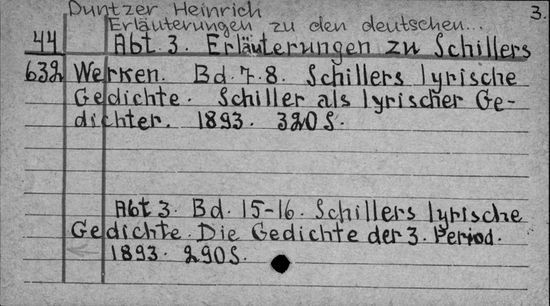 Duntzer Heinrich 3.
Erläuterungen zu den deutschen...
44 Abt. 3. Erläuterungen zu Schillers
632 Werken. Bd. 7. 8. Schillers lyrische
Gedichte. Schiller als lyrischer Ge-
dichter. 1893. 320 S.
Abt 3. Bd. 15-16. Schillers lyrische
Gedichte. Die Gedichte der 3. Period.
1893. 290 S.